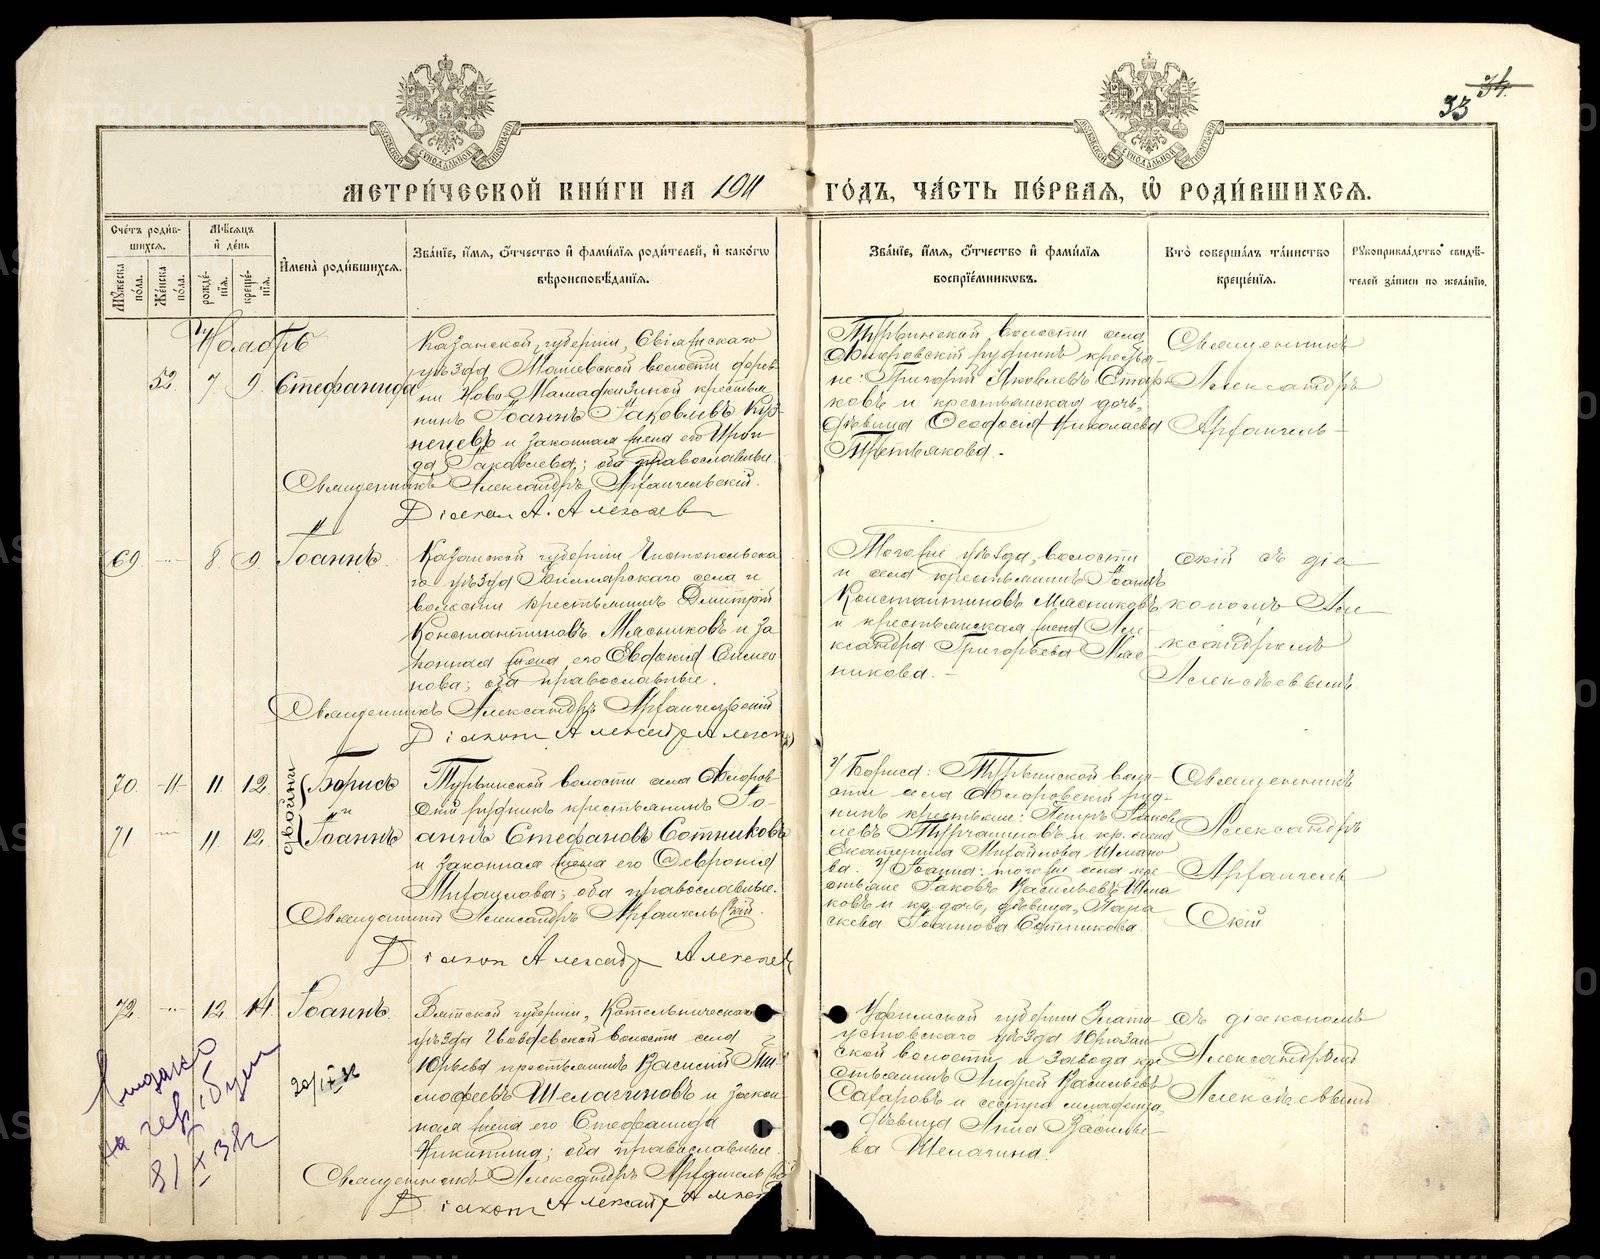 34
33
МЕТРИ́ЧЕСКОЙ КНИ́ГИ НА 1911 ГО́ДЪ, ЧА́СТЬ ПЕ́РВАЯ, Ѡ РОДИ́ВШИХСЯ.
Сче́тъ роди́в-
шихся.
Мѣ́сяцъ
и҆ де́нь
Мꙋ́жеска по́ла.
Же́нска по́ла.
рожде́-
нїя.
креще́-
нїя.
И҆мена̀ роди́вшихся.
Зва́нїе, и҆́мя, ѻ҆́тчество и҆ фами́лїя роди́телей, и҆ како́гѡ
вѣроисповѣ́данїя.
Зва́нїе, и҆́мя, ѻ҆́тчество и҆ фами́лїя
воспрїе́мникѡвъ.
Кто̀ соверша́лъ та́инство
креще́нїя.
Рꙋкоприкла́дство свидѣ́-
телей за́писи по жела́нїю.
Ноябрь
52. 7 9 Стефанида
Казанской губерніи, Свіяжскаго
уѣзда волости дерев-
ни Ново крестья-
нинъ Іоаннъ Іаковлевъ Куз-
нецевъ и законная жена его Ираи-
да Іаковлева; оба православные
Священникъ Александръ Архангельскій.
Діаконъ А. Алексеев
Турьинской волости села
Фроловскій рудникъ крестья-
не: Григорій Яковлевъ Старц-
ковъ и крестьянская дочь,
дѣвица Феодосія Николаева
Третьякова.
Священникъ
Александръ
Архангель-
69 8 9 Іоаннъ.
Казанской губерніи Чистопольска-
го уѣзда Билярскаго села и
волости крестьянинъ Дмитрій
Константиновъ Мясниковъ и за-
конная жена его Евдокія Симео-
нова; оба православные.
Священникъ Александръ Архангельскій
Діаконъ Александръ Алексеев
Того же уѣзда, волости
и села крестьянинъ Іоаннъ
Константиновъ Мясниковъ
и крестьянская жена Але-
ксандра Григорьева Мяс-
никова.
скій съ діа-
кономъ Але-
ксандромъ
Алексѣевымъ
70. 11 12 двойни Борисъ
и
71 11 12 Іоаннъ
Турьинской волости села Фролов-
скій рудникъ крестьянинъ Іо-
аннъ Стефановъ Сотниковъ
и законная жена его Февронія
Михайлова; оба православные.
Священникъ Александръ Архангельскій.
Діаконъ Александръ Алексеев
1/ Бориса: Турьинской воло-
сти села Фроловскій руд-
никъ крестьяне: Петръ Іаков-
левъ Турчаниновъ и кр. жена
Екатерина Михайлова Шмако-
ва. 2/ Іоанна: того же села кре-
стьяне Іаковъ Васильевъ Шма-
ковъ и кр. дочь, дѣвица, Пара-
скева Іоаннова Сотникова.
Священникъ
Александръ
Архангель-
скій
72. 12 14 Іоаннъ.
Вятской губерніи, Котельническаго
уѣзда волости села
Юрьева крестьянинъ Василій Ти-
мофеевъ Шелагиновъ и закон-
ная жена его Стефанида
Никитина; оба православные
Священникъ Александръ Архангельскій
Діаконъ Александръ Алексеев
Уфимской губерніи Злато-
устовскаго уѣзда Юрюзан-
ской волости и завода кре-
стьянинъ Андрей Васильевъ
Сафаровъ и сестра младенца,
дѣвица Анна Василье-
ва Шелагина.
съ діакономъ
Александромъ
Алексѣевымъ